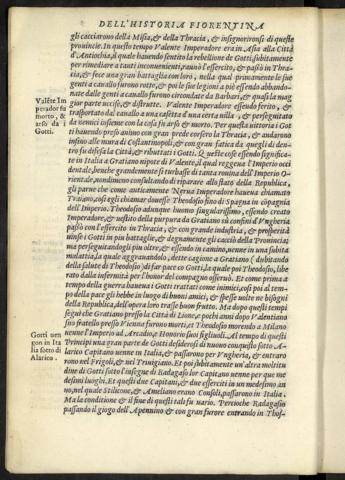 DELL'HISTORIA FIORENTINA
gli cacciarono della Misia, & della Thracia, & insignorironsi di queste
prouincie. In questo tempo Valente Imperadore era in Asia alla Città
d'Antiochia, il quale hauendo sentito la rebellione de Gotti, subitamente
per rimediare a tanti inconuenienti, raunò l'essercito, & passò in Thra-
cia, & fece una gran battaglia con loro, nella qual primamente le sue
genti a cauallo furono rotte, & poi le sue legioni a piè essendo abbando-
nate dalle genti a cauallo furono circondate da Barbari, & quasi la mag
gior parte uccise, & distrutte. Valente Imperadore essendo ferito, &
trasportato dal cauallo a una casetta d'una certa uilla, & perseguitato
da nemici insieme con la casa fu arso & morto. Per questa uittoria i Got
ti hauendo preso animo con gran prede corsero la Thracia, & andarono
insino alle mura di Costantinopoli, & con gran fatica da quegli di den-
tro fu difesa la Città, & ributtati i Gotti. Queste cose essendo significa-
te in Italia a Gratiano nipote di Valente, il qual reggeua l'Imperio occi
dentale, benche grandemente si turbasse di tanta rouina dell'Imperio O-
rientale, nondimeno consultando di riparare allo stato della Republica,
gli parue che come anticamente Nerua Imperadore haueua chiamato
Traiano, così egli chiamar douesse Theodosio fino di Spagna in compagnia
dell'Imperio. Theodosio adunque huomo singularissimo, essendo creato
Imperadore, & uestito della purpura da Gratiano su confini d'Vngheria
passò con l'essercito in Thracia, & con grande industria, & prosperità
uinse i Gotti in piu battaglie, & degnamente gli cacciò della Prouincia:
ma perseguitandogli piu oltre, & essendo in camino, uenne in una subita
malattia, la quale aggrauandolo, dette cagione a Gratiano (dubitando
della salute di Theodosio) di far pace co Gotti, la quale poi Theodosio, libe
rato dalla infermità per l'honor del compagno osseruò. Et come prima a
tempo della guerra haueua i Gotti trattati come inimici, così poi al tem-
po della pace gli hebbe in luogo di buoni amici, & spesse uolte ne bisogni
della Republica, dell'opera loro trasse buon frutto. Ma dopo questi tempi
seguì che Gratiano presso la Città di Lione, & pochi anni dopo Valentiano
suo fratello presso Vienna furono morti, et Theodosio morendo a Milano
uenne l'Imperio ad Arcadio, & Honorio suoi figliuoli. Al tempo di questi
Principi una gran parte de Gotti desiderosi di nuouo conquisto sotto A-
larico Capitano uenne in Italia, & passarono per Vngheria, & entraro
rono nel Frigoli, & nel Triuigiano. Et poi subitamente un'altra moltitu
dine di Gotti sotto l'insegne di Radagaso lor Capitano uenne per que me
desimi luoghi. Et questi due Capitani, & due esserciti in un medesimo an
no, nel quale Stilicone, & Aureliano erano Consoli, passarono in Italia.
Ma la conditione & il fine di questi tali fu uario. Percioche Radagasio
passando il giogo dell'Apennino & con gran furore entrando in Thos-
Valẽte Im
perador fu
morto, &
arso da i
Gotti.
Gotti uen
gon in Ita
lia sotto di
Alarico.